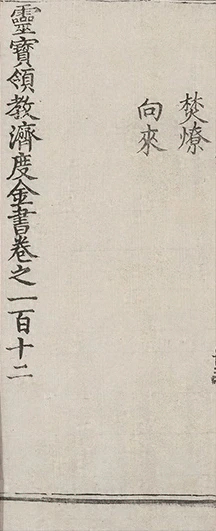 焚燎
向來
靈寶領教濟度金書卷之一百十二